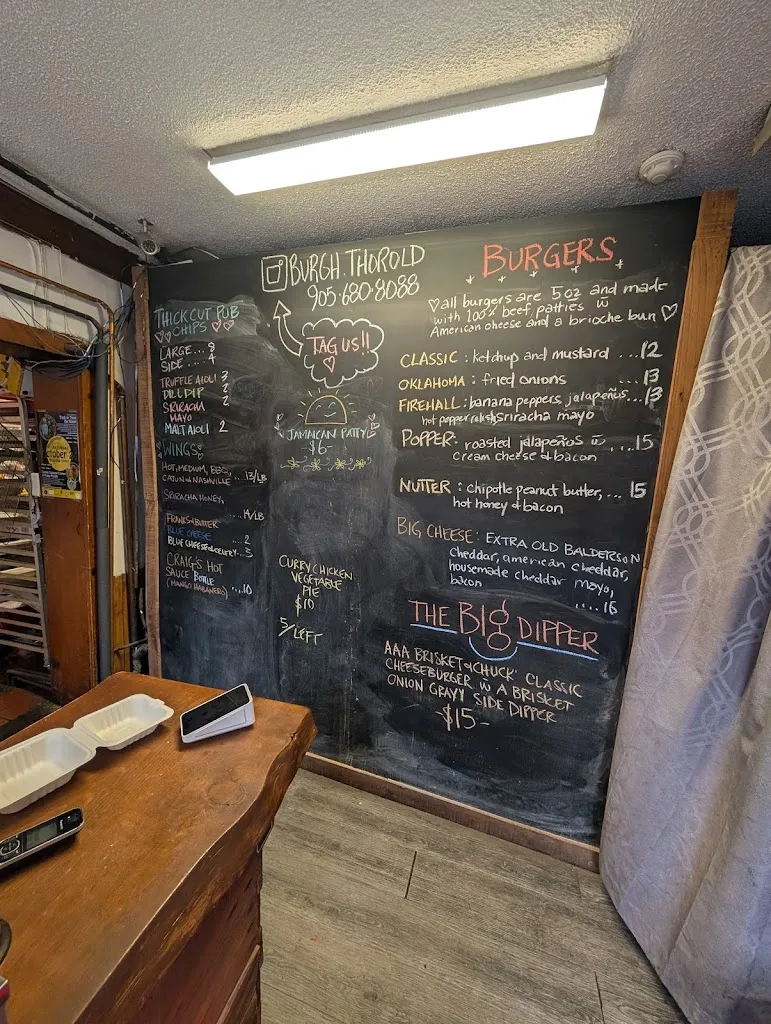 BURGH.THOROLD
905-680-8088
TAG US!!
THICK CUT PUB
CHIPS
LARGE... 8
SIDE... 4
TRUFFLE AIOLI 3
DILL DIP 2
SRIRACHA
MAYO 2
MALT AIOLI 2
WINGS
HOT, MEDIUM, BBQ,
CAJUN & NASHVILLE ...13/LB
SRIRACHA HONEY,
14/LB
FRANKS & BUTTER
BLUE CHEESE ...2
BLUE CHEESE & CELERY...3
CRAIG'S HOT
SAUCE BOTTLE
(MANGO HABANERO) ...10
JAMAICAN PATTY
$6-
CURRY CHICKEN
VEGETABLE
PIE
$10
5/LEFT
BURGERS
all burgers are 5oz and made
with 100% beef patties w
American cheese and a brioche bun
CLASSIC : ketchup and mustard ...12
OKLAHOMA : fried onions ...13
FIREHALL : banana peppers, jalapeños...13
hot pepper relish, sriracha mayo
POPPER- roasted jalapeños w ... 15
cream cheese & bacon
NUTTER : chipotle peanut butter, ... 15
hot honey & bacon
BIG CHEESE : EXTRA OLD BALDERSON
cheddar, american cheddar,
housemade cheddar mayo,
bacon
.... 16
THE BIG DIPPER
AAA BRISKET & CHUCK CLASSIC
CHEESEBURGER W A BRISKET
ONION GRAVY SIDE DIPPER
$15-